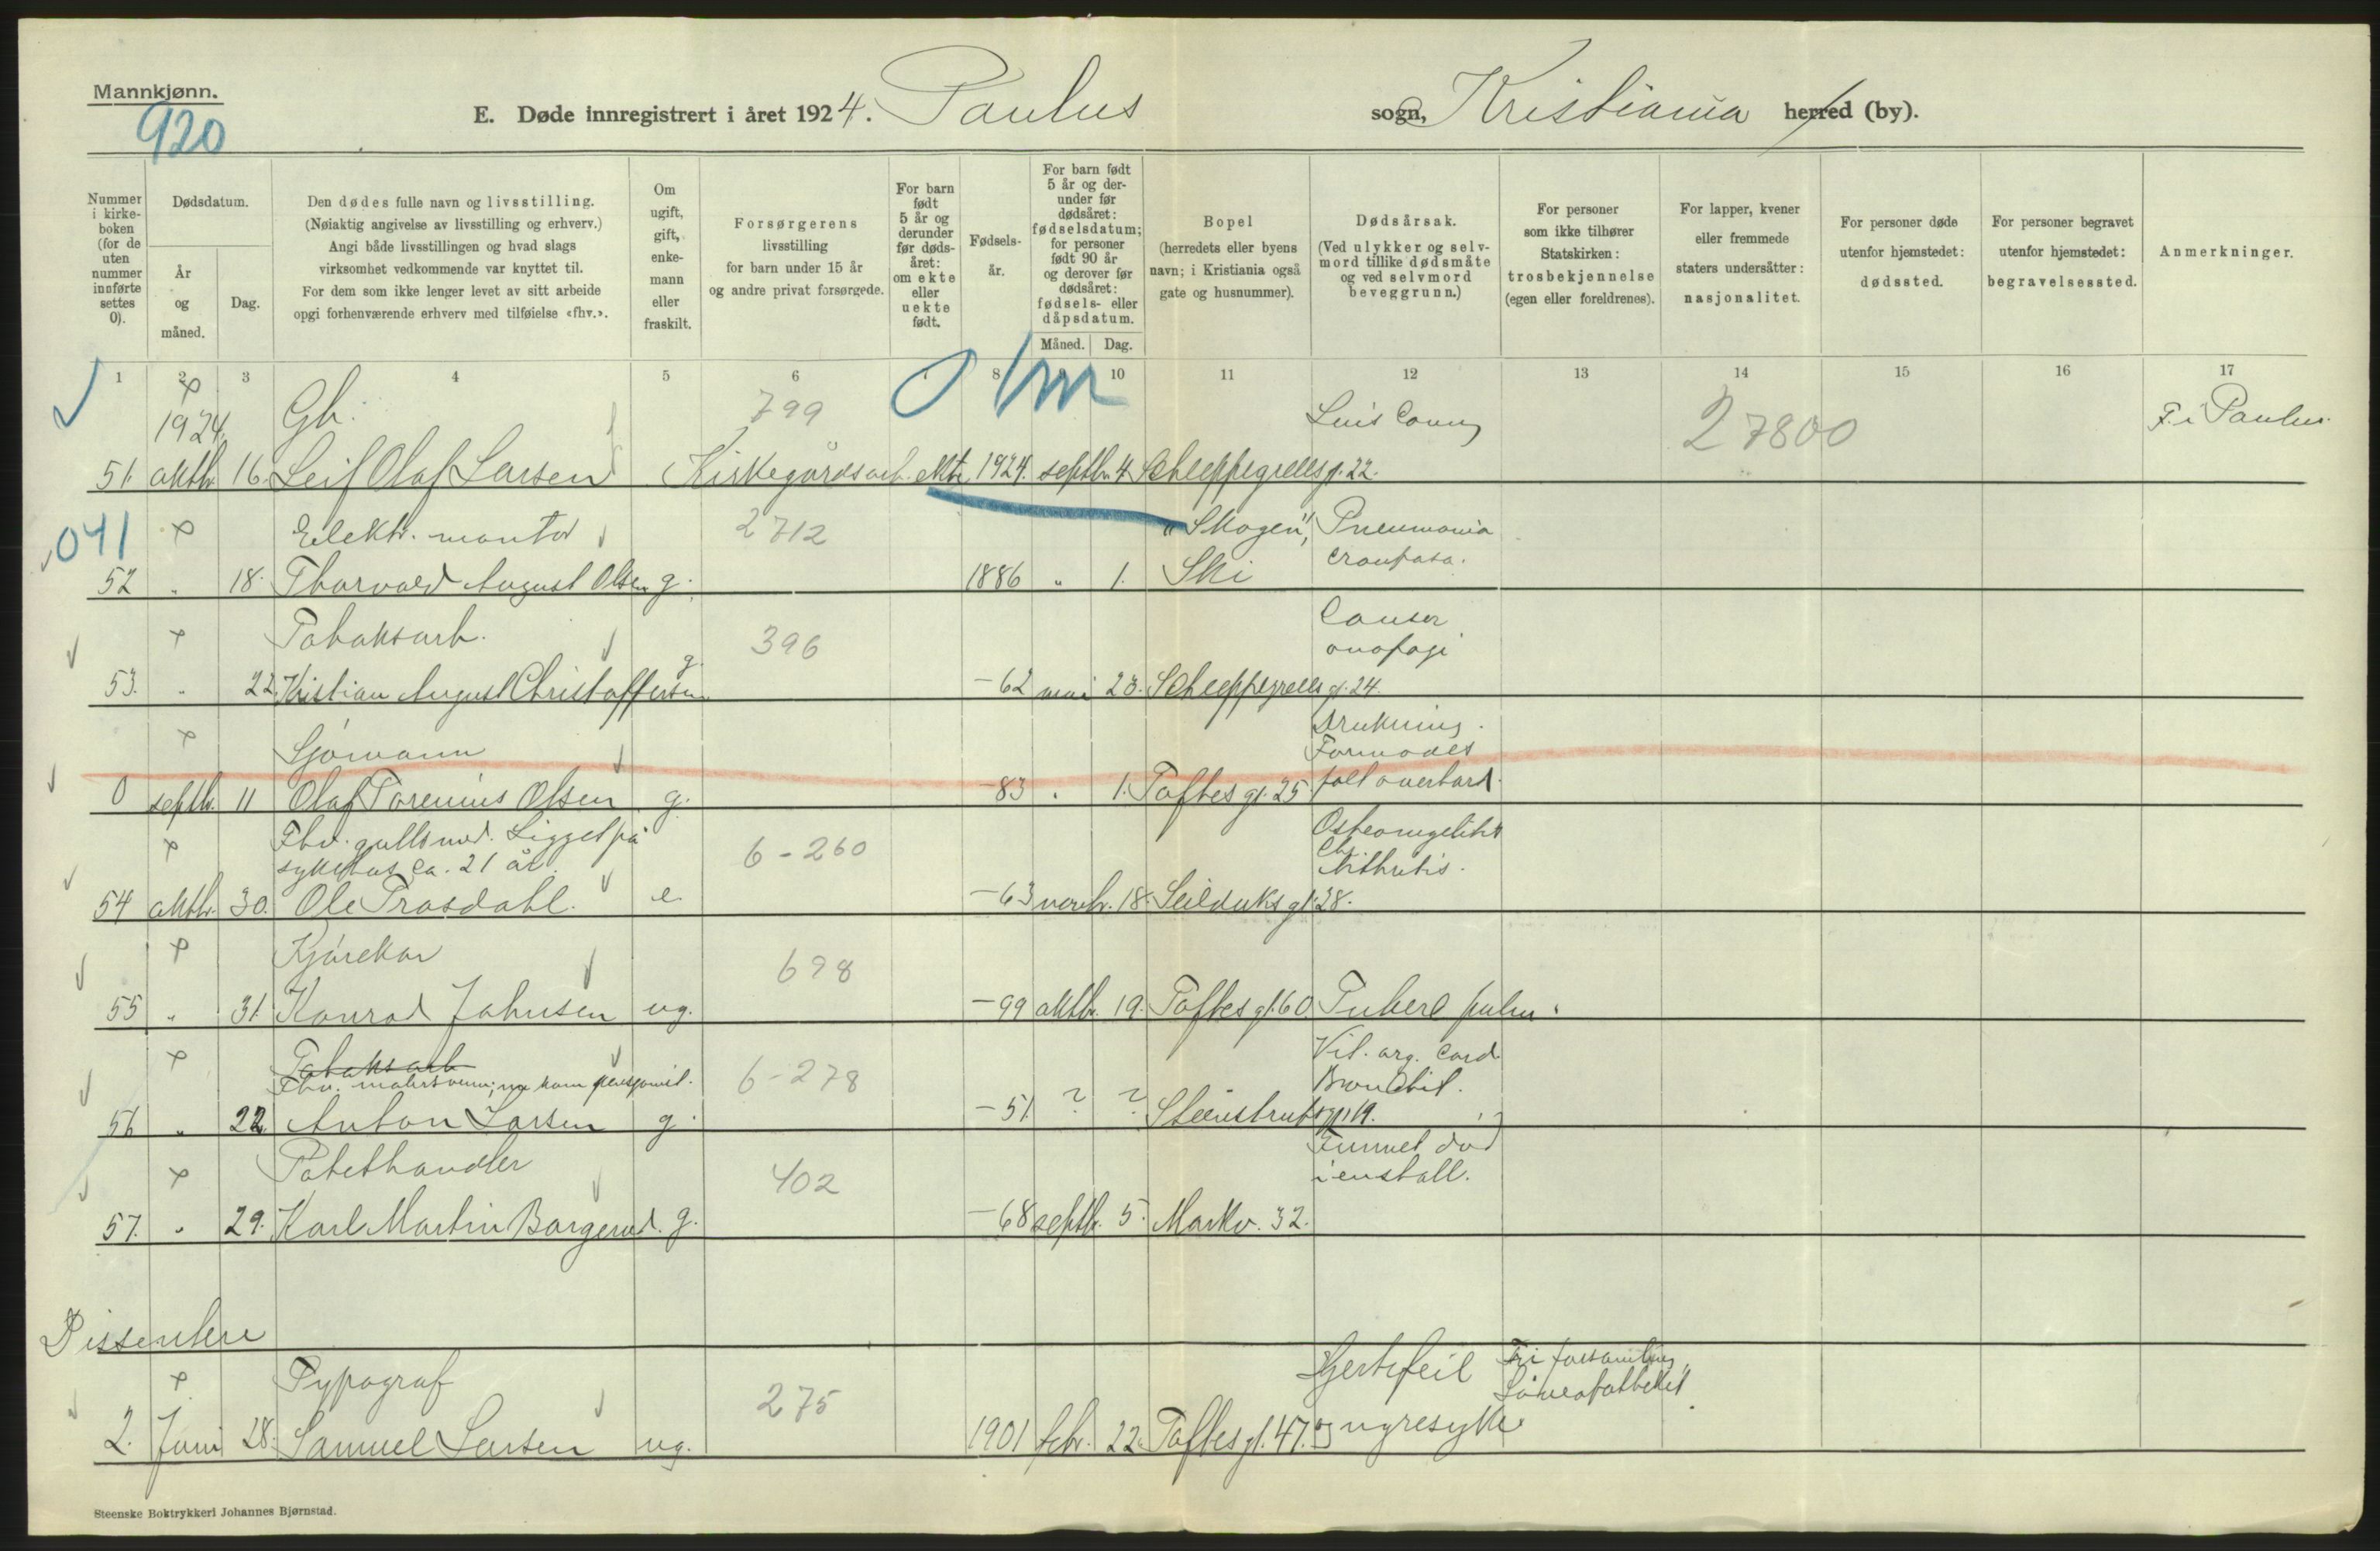 Mannkjønn.
920
E. Døde innregistrert i året 1924. Paulus sogn, Kristiania herred (by).
Nummer i kirkeboken (for de uten nummer innførte settes 0).
Dødsdatum.
År og måned.
Dag.
Den dødes fulle navn og livsstilling.
(Nøiaktig angivelse av livsstilling og erhverv.)
Angi både livsstillingen og hvad slags
virksomhet vedkommende var knyttet til.
For dem som ikke lenger levet av sitt arbeide
opgi forhenværende erhverv med tilføielse «fhv.».
Om ugift, gift, enkemann eller fraskilt.
Forsørgerens
livsstilling
for barn under 15 år
og andre privat forsørgede.
For barn født 5 år og derunder før dødsåret: om ekte eller uekte født.
Fødselsår.
For barn født 5 år og derunder før dødsåret: fødselsdatum; for personer født 90 år og derover før dødsåret: fødsels- eller dåpsdatum.
Måned. Dag.
Bopel
(herredets eller byens
navn; i Kristiania også
gate og husnummer).
Dødsårsak.
(Ved ulykker og selvmord tillike dødsmåte
og ved selvmord
beveggrunn.)
For personer
som ikke tilhører
Statskirken:
trosbekjennelse
(egen eller foreldrenes).
For lapper, kvener
eller fremmede
staters undersåtter:
nasjonalitet.
For personer døde
utenfor hjemstedet:
dødssted.
For personer begravet
utenfor hjemstedet:
begravelsessted.
Anmerkninger.
1 2 3 4 5 6 7 8 10 11 12 13 14 15 16 17
1924. Gb. 799 Luis Cong 27800 F. i Paulus.
51. oktb. 16. Leif Olaf Larsen Kirkegårdsarb. ekte 1924. septb. 4 Schleppegrellsg. 22.
041 Elektr. montør 2712 "Skogen", Pneumonia crouposa.
52 " 18. Thorvald August Olsen g. 1886 " 1. Ski
Tobaksarb. 396 Cancer
53. " 22. Kristian August Christoffersen g. -62 mai 23. Schleppegrells g. 24.
Sjømann Drukning. Formodes
0 septb. 11 Olaf Torenius Olsen g. -83 " 1. Toftes gt. 25 falt overbord.
Fhv. gullsmed. Ligget på
sykehus ca. 21 år. 6-260 Arthritis.
54 oktb. 30. Ole Trosdahl. e. -63 novbr. 18. Seilduks gt. 28.
Kjørekar 698
55 " 31. Konrad Johnsen ug. -99 oktb. 19. Toftes gt. 60 Tuberc pulm.
Tobaksarb
Fhv. malersvenn; nu kom pensjonist. 6-278 Vit. org. cord. Bronchit.
56 " 22. Anton Larsen g. -51 ? ? Steenstrups gt. 19.
Potethandler 402 Funnet død
i en stall.
57. " 29. Karl Martin Borgerud. g. -68 septb. 5. Markv. 32.
Dissentere
Typograf 275 Hjertefeil Fri forsamling
2. Juni 28. Samuel Larsen ug. 1901 febr. 22. Toftes gt. 47. og nyresyke
Steenske Boktrykkeri Johannes Bjørnstad.